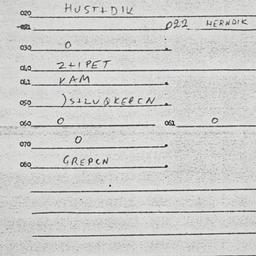 020 HUSTHDIK
021 022 HERNDIK
030 0
040 2+IPET
041 VAM
050 )S+LUQKEPCN
060 0 061 0
070 0
080 GREPCN